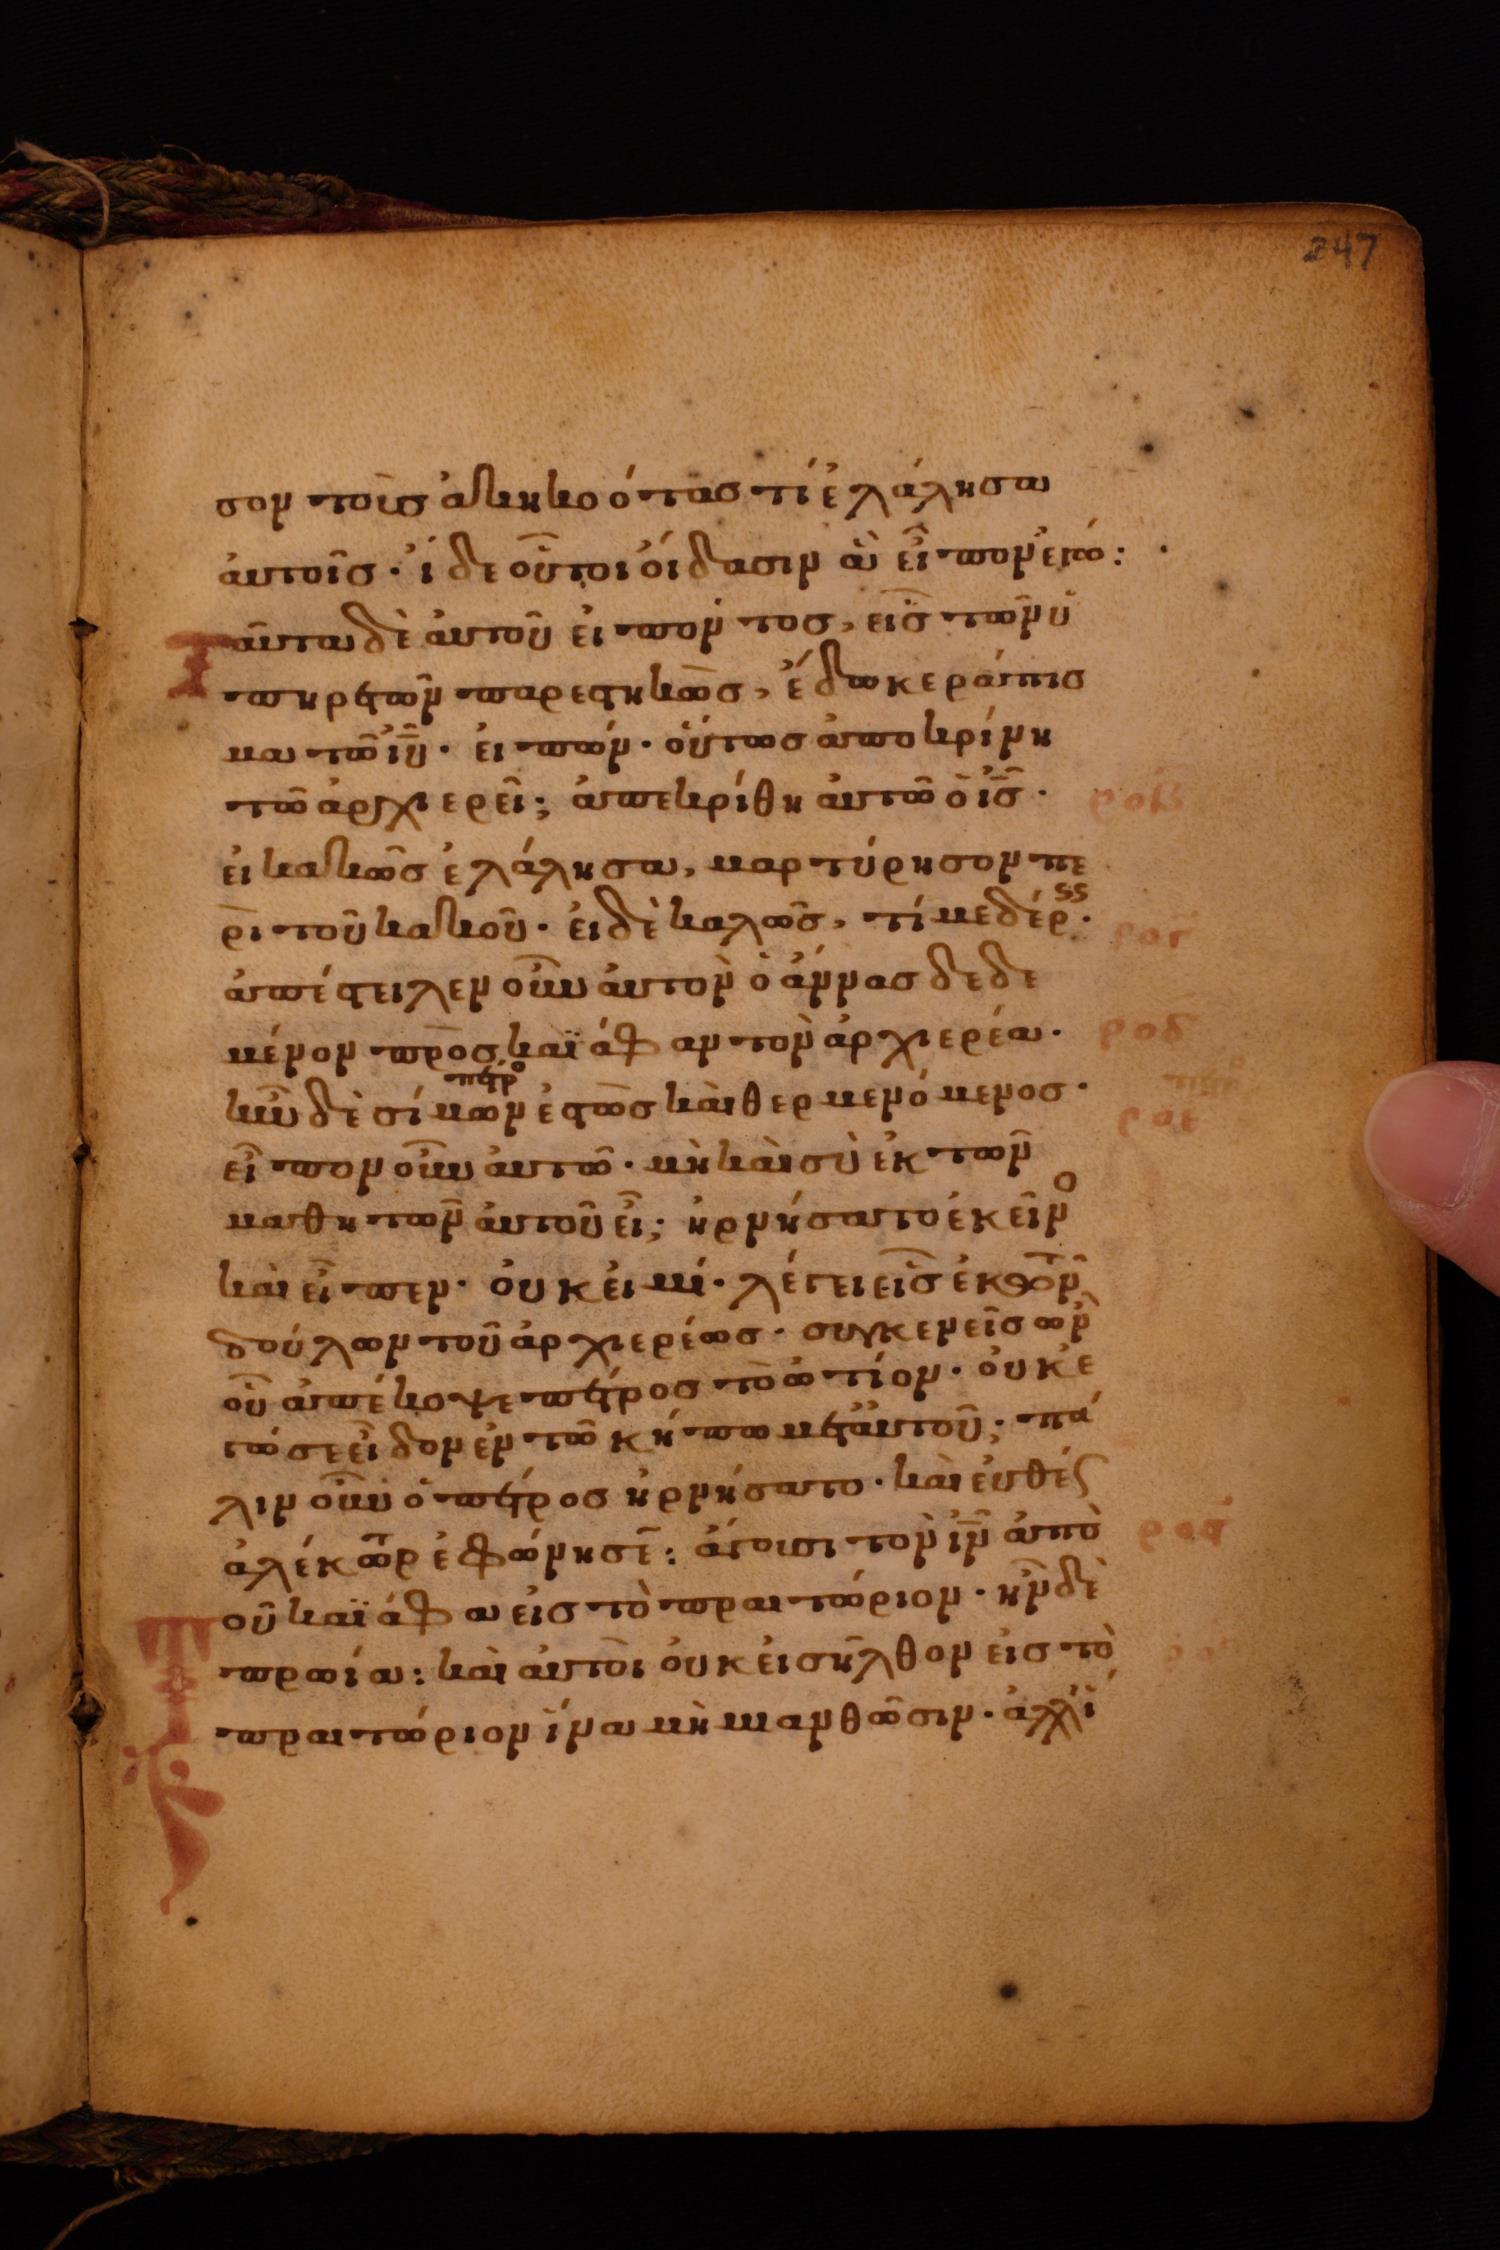 247
σον τοὺς ἀκηκοότας τί ἐλάλησα
ἀυτοῖς· ἴδε οὗτοι ὀίδασιν ἃ εἶπον ἐγώ:
Ταῦτα δὲ ἀυτοῦ ἐιπόντος, εἷς τῶν ὑ
πηρετῶν παρεστηκὼς, ἔδωκε ράπισ
μα τῶ ἰῦ· ἐιπών· οὕτως ἀποκρίνη
τῶ ἀρχιερεῖ; ἀπεκρίθη ἀυτῶ ὁ ἰς·
ἐι κακῶς ἐλάλησα, μαρτύρησον πε
ρὶ τοῦ κακοῦ· ἐι δὲ καλῶς, τί με δέρ·
ἀπέστειλεν οὖν ἀυτὸν ὁ ἄννας δεδε
μένον πρὸς καϊάφαν τὸν ἀρχιερέα·
πέτρο
ἦν δὲ σίμων ἑστὼς καὶ θερμενόμενος·
εἶπον οὖν ἀυτῶ· μὴ καὶ σὺ ἐκ τῶν
μαθητῶν ἀυτοῦ εἶ; ἠρνήσατο ἐκεῖνο
καὶ εἶπεν· ὀυκ ἐιμί· λέγει εἷς ἐκ τῶν
δούλων τοῦ ἀρχιερέως· συγκενεῖς ὢν
οὗ ἀπέκοψε πέτρος τὸ ὠτίον· ὀυκ ἐ
γώ σε εἶδον ἐν τῶ κήπω μετ ἀυτοῦ; πά
λιν οὖν ὁ πέτρος ἠρνήσατο· καὶ ἐυθές
ἀλέκτωρ ἐφώνησε: ἄγουσι τὸν ἰν ἀπὸ
οῦ καϊάφα εἰς τὸ πραιτώριον· ἦν δὲ
πρωία: καὶ ἀυτοὶ ὀυκ ἐισῆλθον ἐις τὸ
πραιτώριον ἵνα μὴ μιανθῶσιν· ἀλλ ἵ
ροδ
ροε